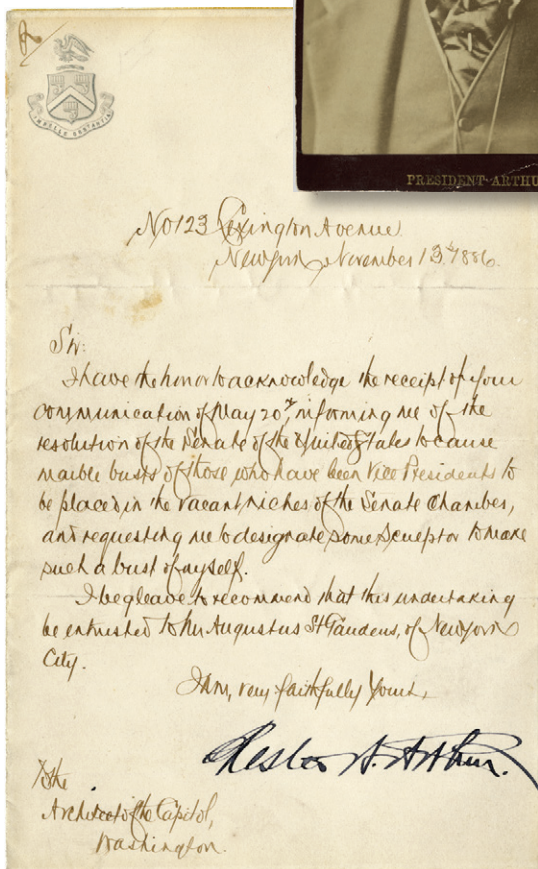 PRESIDENT ARTHU
No 123 Lexington Avenue
New York, November 13th, 1886.
Sir:
I have the honor to acknowledge the receipt of your
communication of May 20th, informing me of the
resolution of the Senate of the United States to cause
marble busts of those who have been Vice Presidents to
be placed in the vacant niches of the Senate Chamber,
and requesting me to designate some Sculptor to make
such a bust of myself.
I beg leave to recommend that this undertaking
be entrusted to Mr Augustus St Gaudens, of New York
City.
I am, very faithfully Yours,
Chester A. Arthur.
To the
Architect of the Capitol,
Washington.